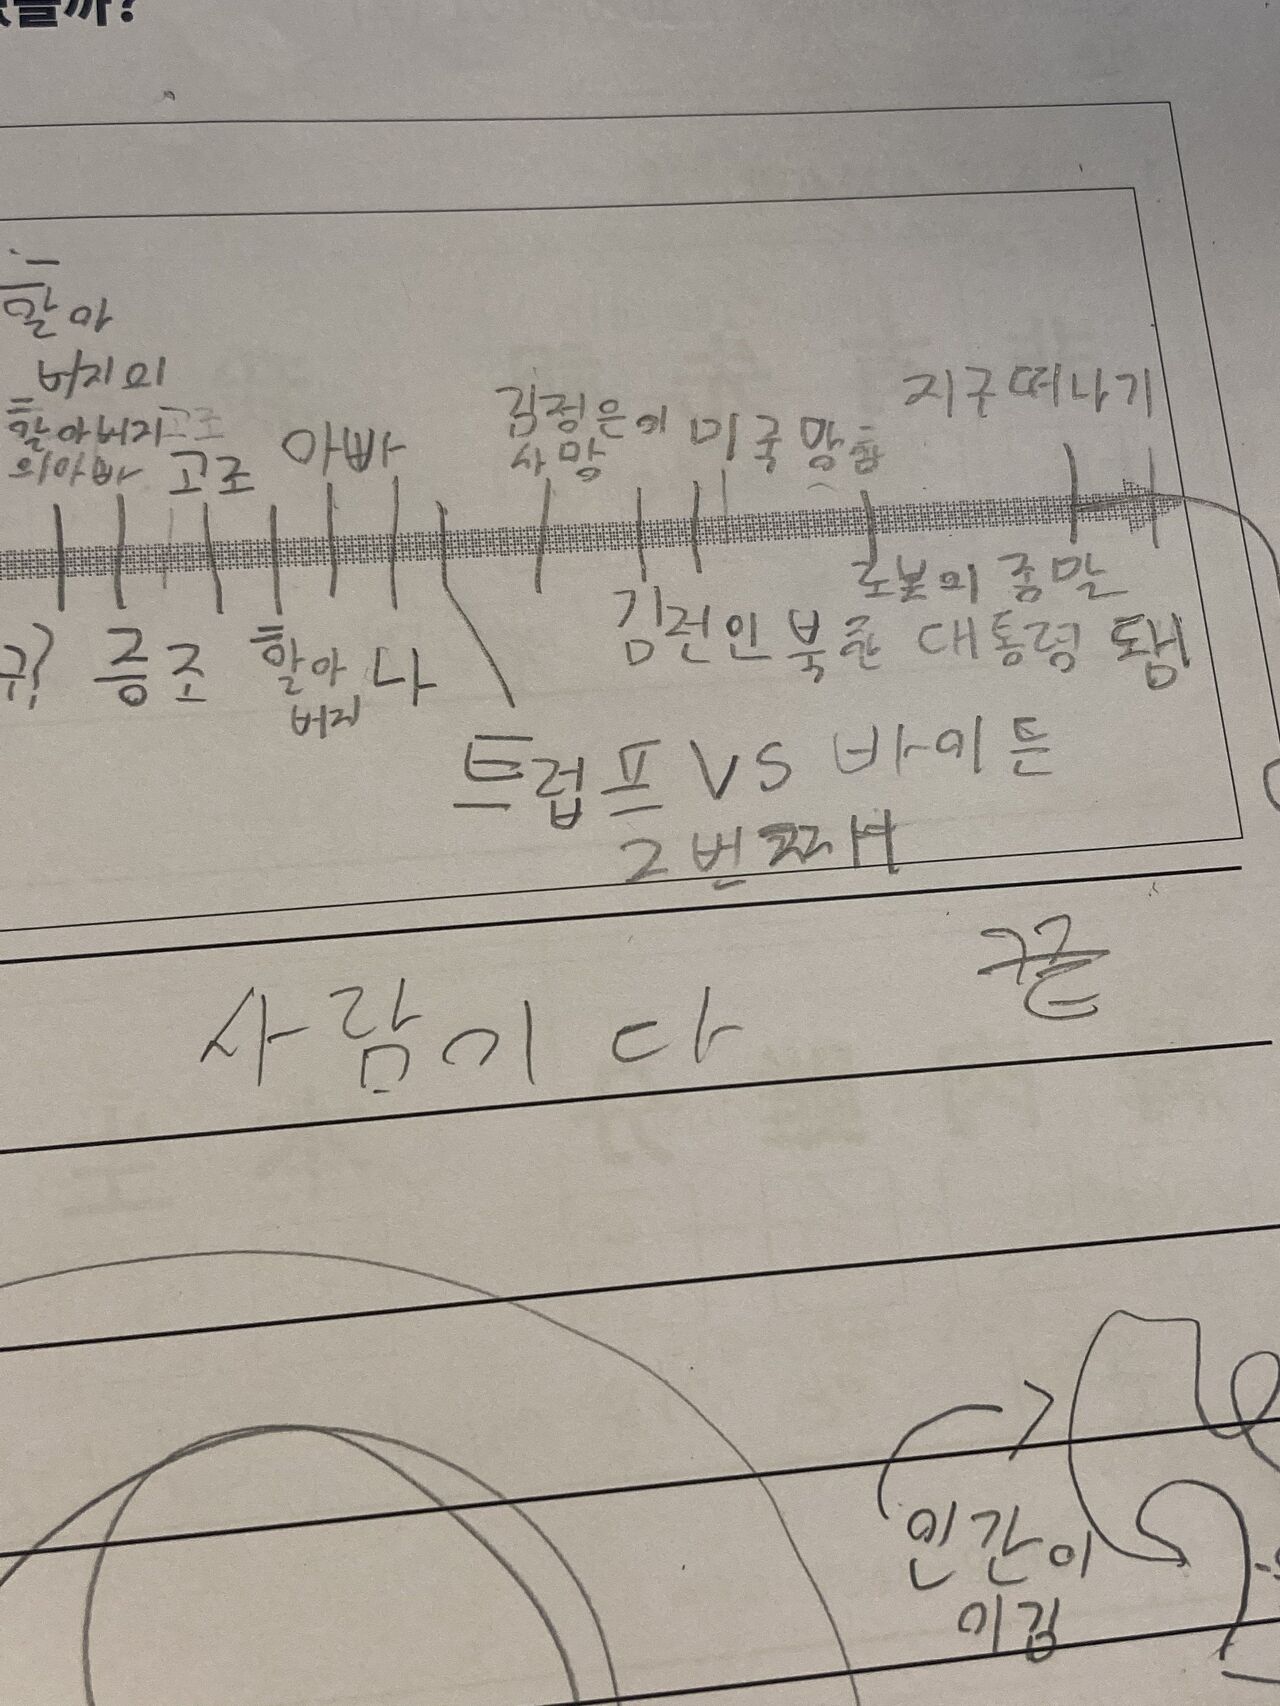 할아
버지의
할아버지
의아빠
고조
고조
아빠
김정은이
사망
미국 망함
지구 떠나기
증조
할아
버지
나
로봇의 종말
대통령 됌
트럼프 VS 바이든
2번째
사람이다
끝
인간이
이김